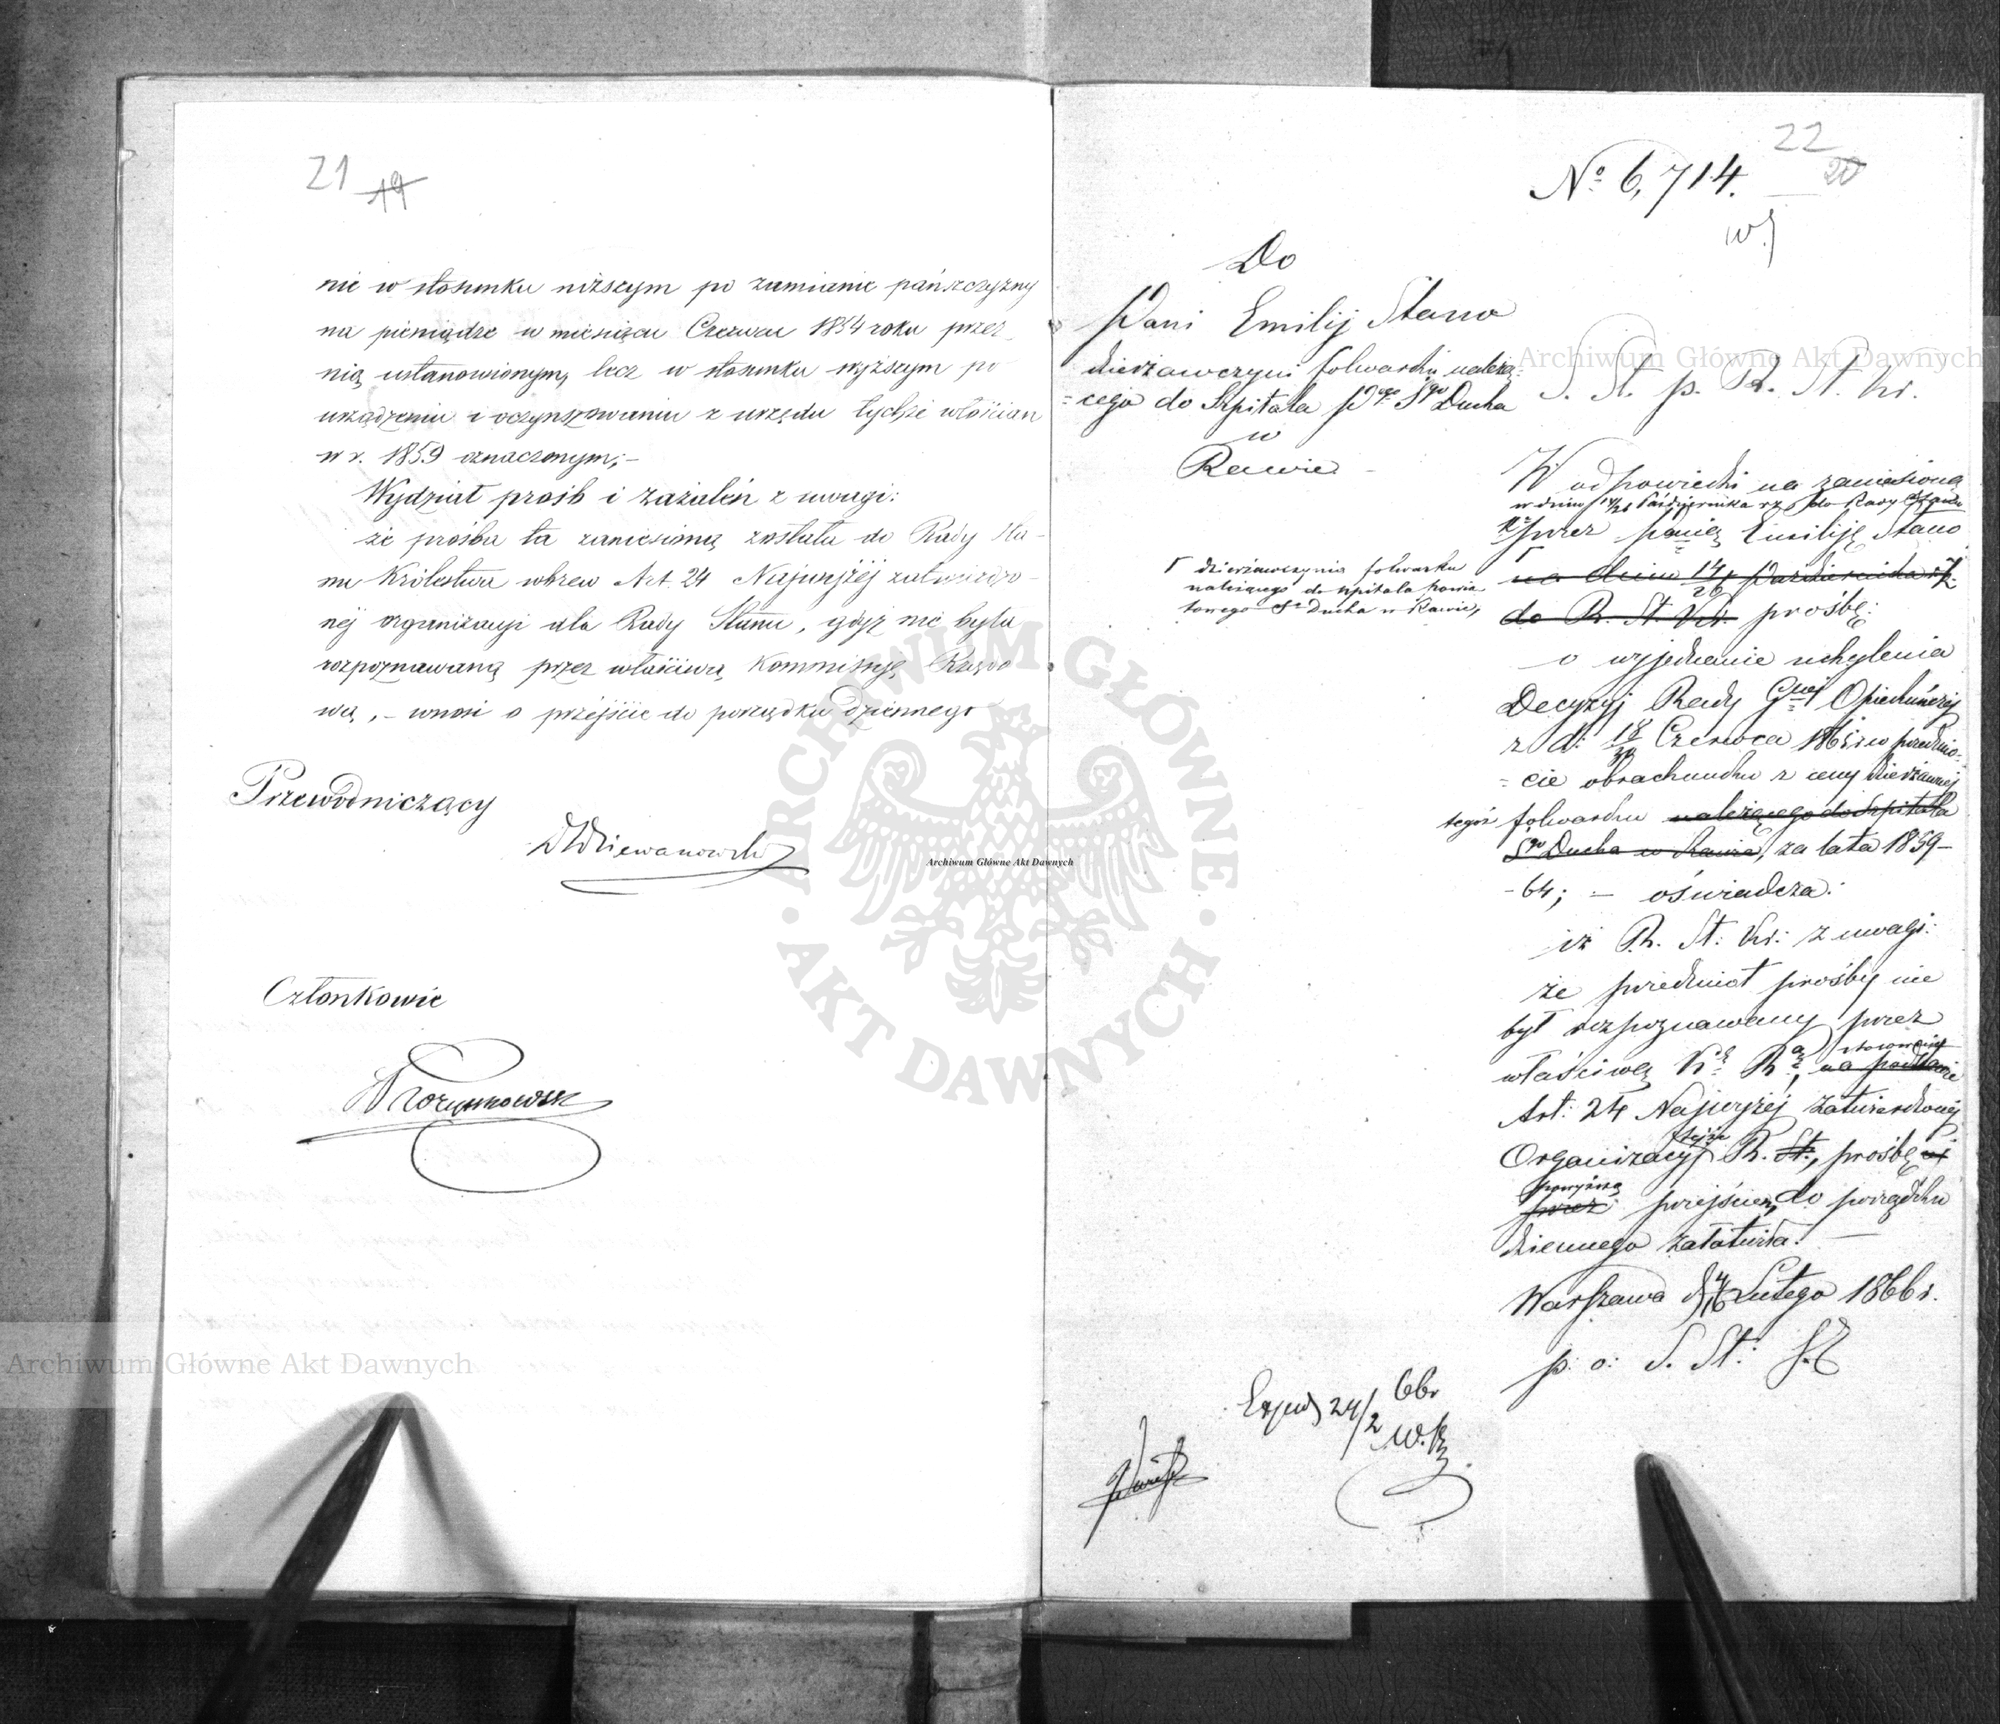 21 19
nie w stosunku niższym po zamianie pańszczyzny
na pieniądze w miesiącu Czerwcu 1854 roku przez
nią ustanowionym, lecz w stosunku wyższym po
urządzeniu i oczynszowaniu z urzędu tychże włościan
w r. 1859 oznaczonym; –
Wydział próśb i zażaleń z uwagi:
że prośba ta zaniesioną została do Rady Sta-
nu Królestwa wbrew Art. 24 Najwyżéj zatwierdzo-
néj organizacyi dla Rady Stanu, gdyż nie była
rozpoznawaną przez właściwą Kommissyję Rządo
wą, – wnosi o przejście do porządku dziennego
Przewodniczący
Członkowie
22
20
No 6,714.
Do
Pani Emilij Stano
dzierżawczyni folwarku należą=
=cego do Szpitala Pgo Sgo Ducha
w
Rawie
S. St. p. R. St. Kr.
W odpowiedzi na zaniesioną
w dniu 14/26 Października rz do Rady Stanu
Kr przez panią Emiliję Stano
Γ dzierżawczynią folwarku
należącego do szpitala powia
towego Sgo Ducha w Rawie,
na dniu 14/26 Października rz.
do R. St. Kr. prośbę:
o wyjednanie uchylenia
Decyzyj Rady Gnej Opiekuńczéj
z d: 18/30 Czerwca 1865 r w przedmio-
=cie obrachunku z ceny dzierżawnej
tegóż folwarku należącego do Szpitala
Sgo Ducha w Rawie, za lata 1859–
–64; – oświadcza:
iż R. St: Kr: z uwagi:
że przedmiot prośby nie
był rozpoznawany przez
właściwą Kę Rą, na podstawie
stosownie
Art: 24 Najwyżéj zatwierdzonéj
Organizacyj tejże R. St:, prośbę
powyższą
przez przejściem do porządku
dziennego załatwiła. –
Warszawa d 4/16 Lutego 1866 r.
p: o: S. St:
Exped 24/2 66r